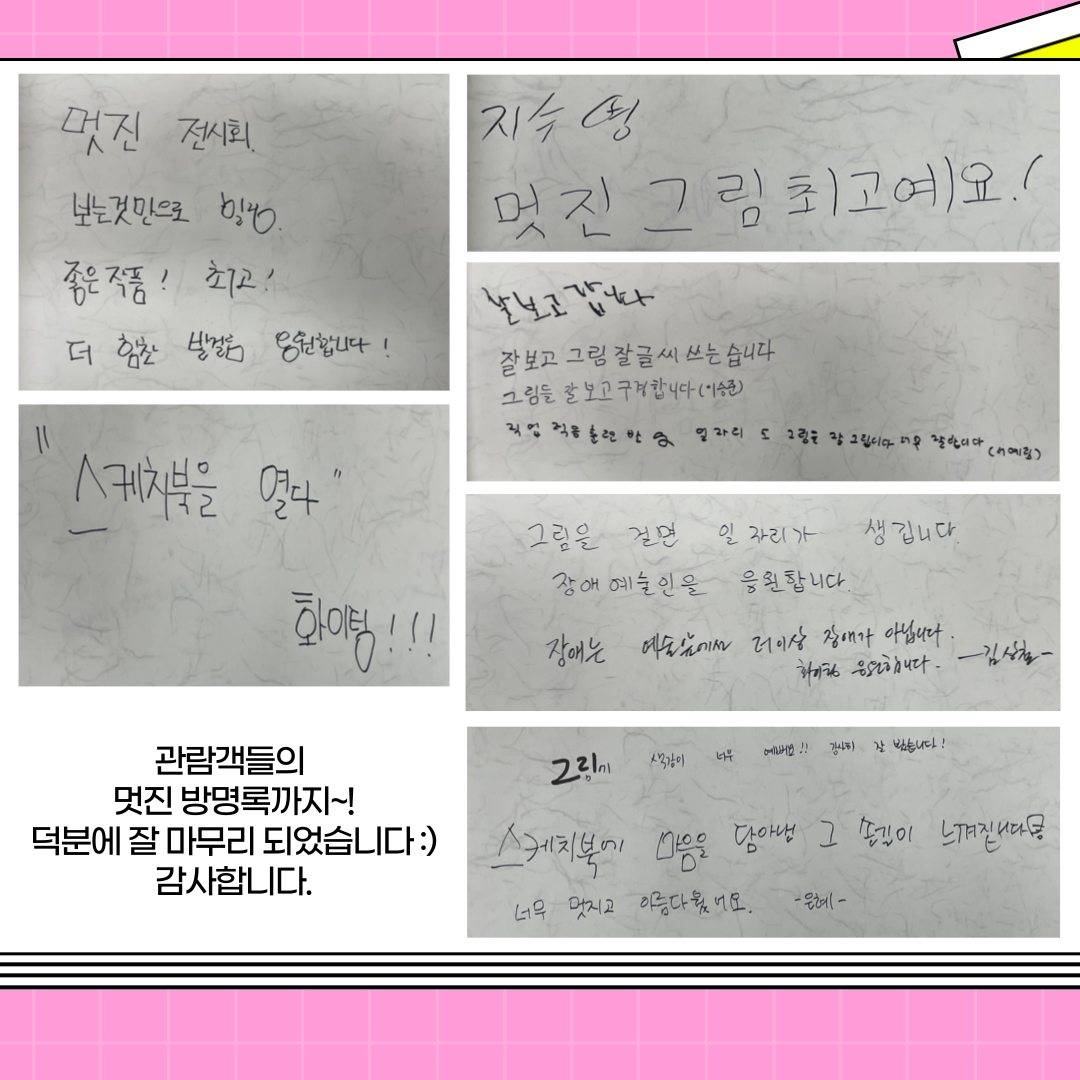 멋진 전시회.
보는것만으로 힐링.
좋은 작품! 최고!
더 힘찬 발걸음 응원합니다!
"스케치북을 열다"
화이팅!!!
지수 형
멋진 그림 최고예요!
잘보고갑니다
잘보고 그림 잘글씨 쓰는습니다
그림들 잘보고구경합니다(이승준)
직업 적응 훈련 반 일자리 도 그림을 잘 그립니다 너무 잘합니다
그림을 걸면 일자리가 생깁니다.
장애예술인을 응원합니다.
장애는 예술앞에서 더이상 장애가 아닙니다.
화이팅 응원합니다. -김상철-
그림이 색감이 너무 예뻐요!! 감사히 잘 봤습니다!
스케치북에 마음을 담아낸 그 손길이 느껴집니다
너무 멋지고 아름다웠어요. -은혜-
관람객들의
멋진 방명록까지~!
덕분에 잘 마무리 되었습니다 :)
감사합니다.